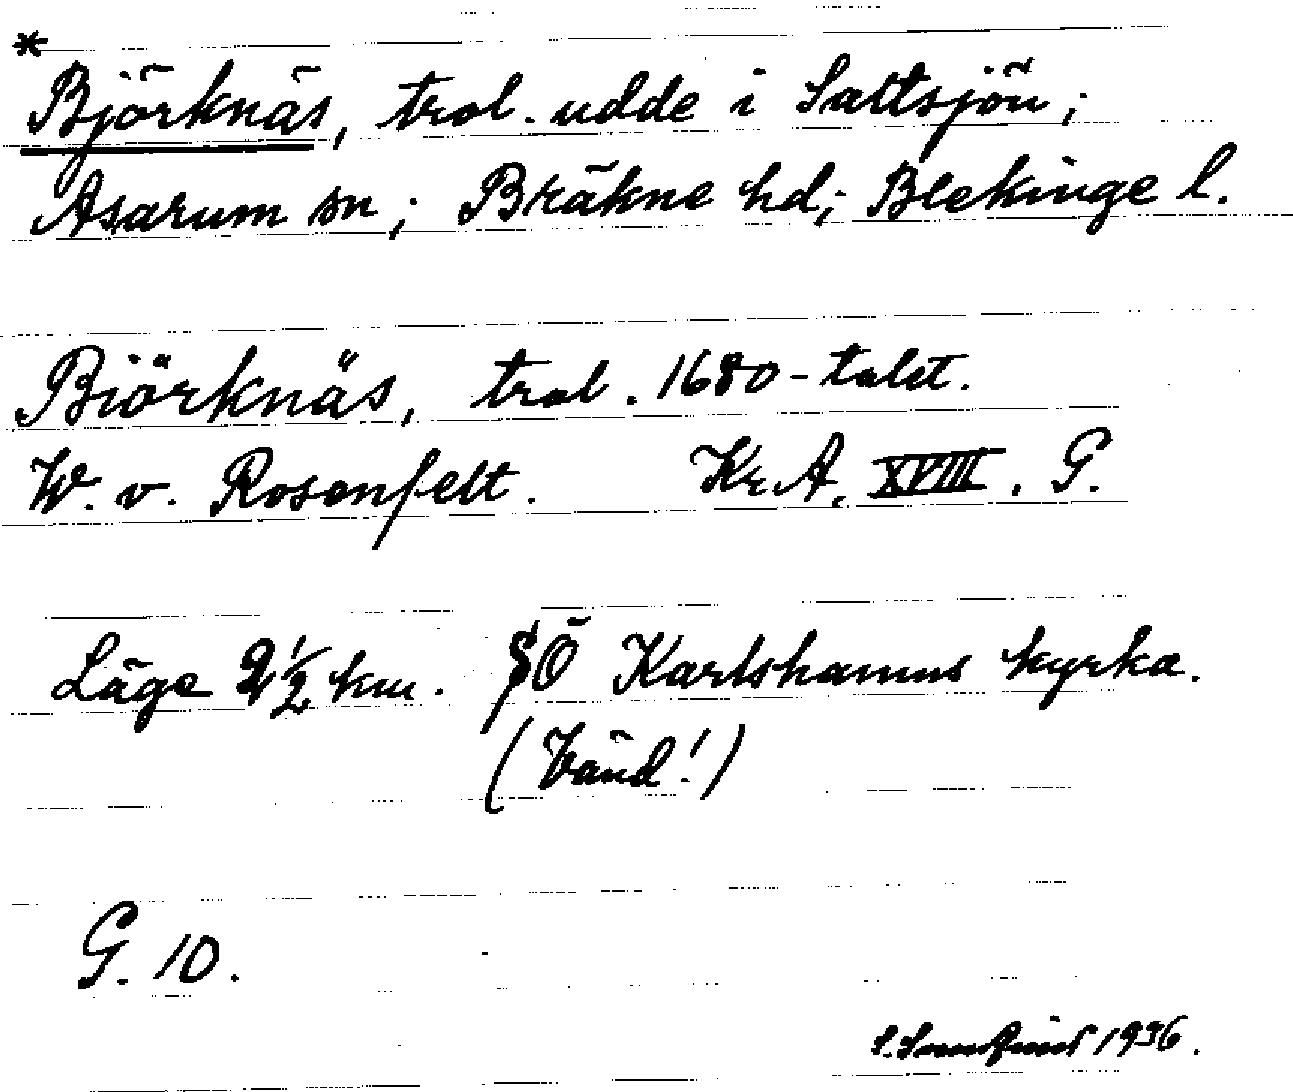 *
Björknäs, trol. udde i Saltsjön;
Asarum sn; Bräkne hd; Blekinge l.
Biörknäs, trol. 1680-talet.
W. v. Rosenfelt. Kr.A. XVIII. G.
Läge 2½ km. SÖ Karlshamns kyrka.
(Vänd!)
G. 10.
1936.